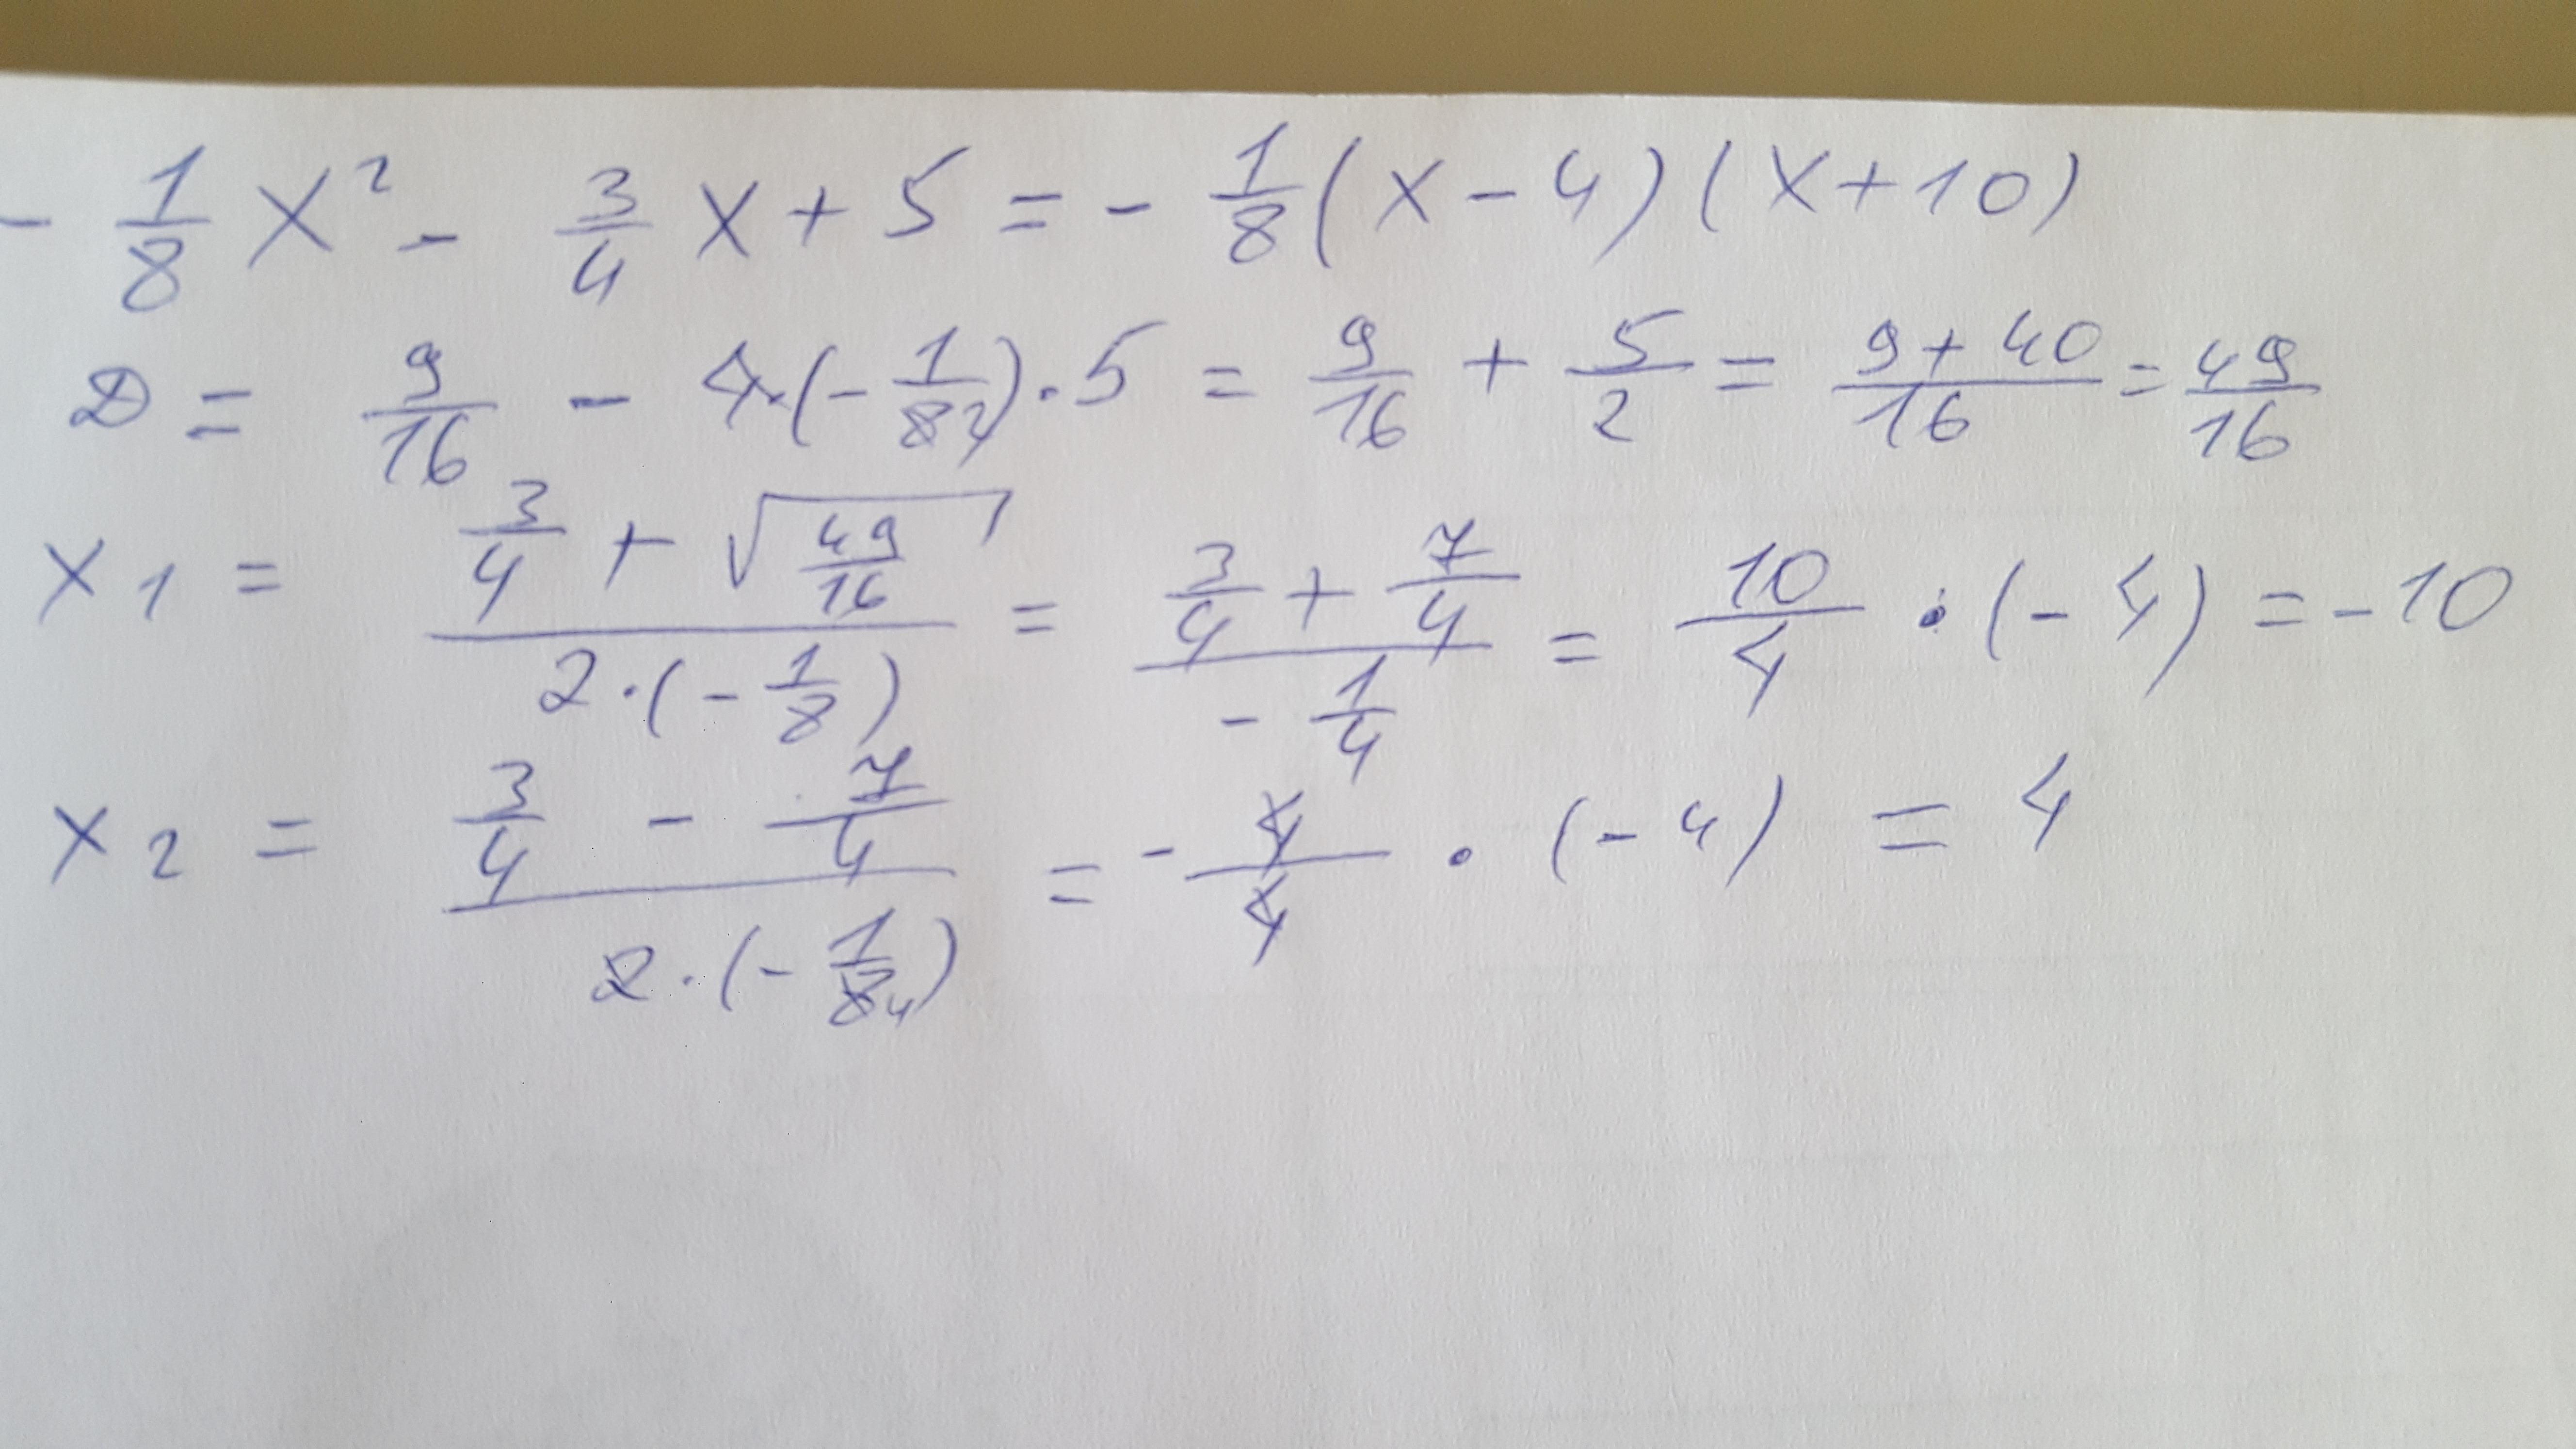 - 1/8 x² - 3/4 x + 5 = - 1/8 (x - 4)(x + 10)
D = 9/16 - 4·(- 1/8 2)·5 = 9/16 + 5/2 = (9 + 40)/16 = 49/16
x1 = (3/4 + √(49/16))/(2·(- 1/8)) = (3/4 + 7/4)/(- 1/4) = 10/4 · (- 4) = - 10
x2 = (3/4 - 7/4)/(2·(- 1/8 4)) = - 4/4 · (- 4) = 4